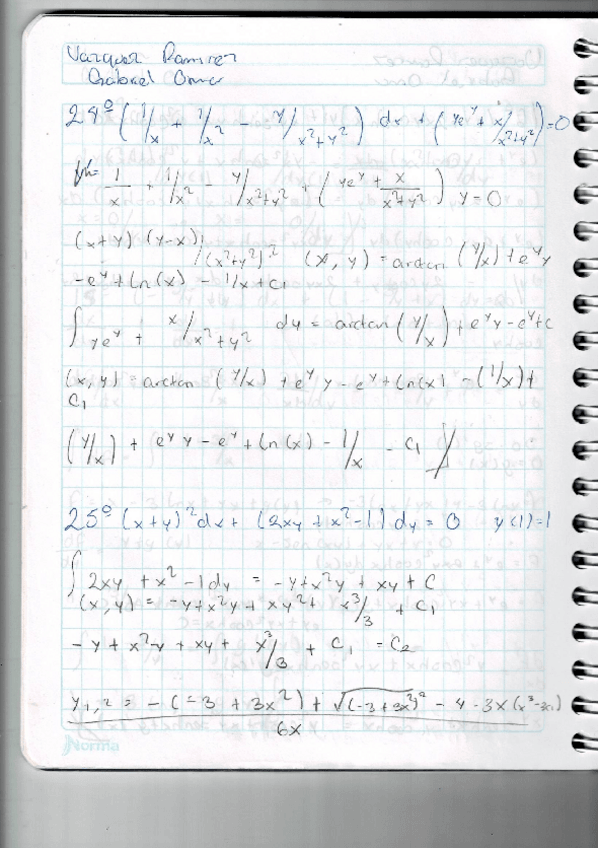 Vazquez Ramirez
Gabriel Omar
24º (1/x + 1/x² - y/x²+y²) dx + (ye^y + x/x²+y²)=0
1/x + 1/x² - y/x²+y² + (ye^y + x/x²+y²) y=0
(x+y) (y-x)/(x²+y²)² (x, y) = arctan (y/x) + e^y y
-e^y + Ln(x) - 1/x + C1
∫ ye^y + x/x²+y² dy = arctan (y/x) + e^y y - e^y + C
(x, y) = arctan (y/x) + e^y y - e^y + Ln(x) - (1/x) +
C1
(y/x) + e^y y - e^y + Ln(x) - 1/x - C1
25º (x+y)² dx + (2xy + x² - 1) dy = 0 y(1)=1
∫ 2xy + x² - 1 dy = -y + x²y + xy + C
(x, y) = -y + x²y + xy² + x³/3 + C1
-y + x²y + xy + x³/3 + C1 = C2
y1,2 = -(-3 + 3x²) + √(-3+3x²)² - 4 · 3x (x³-3C1)
6x
Norma